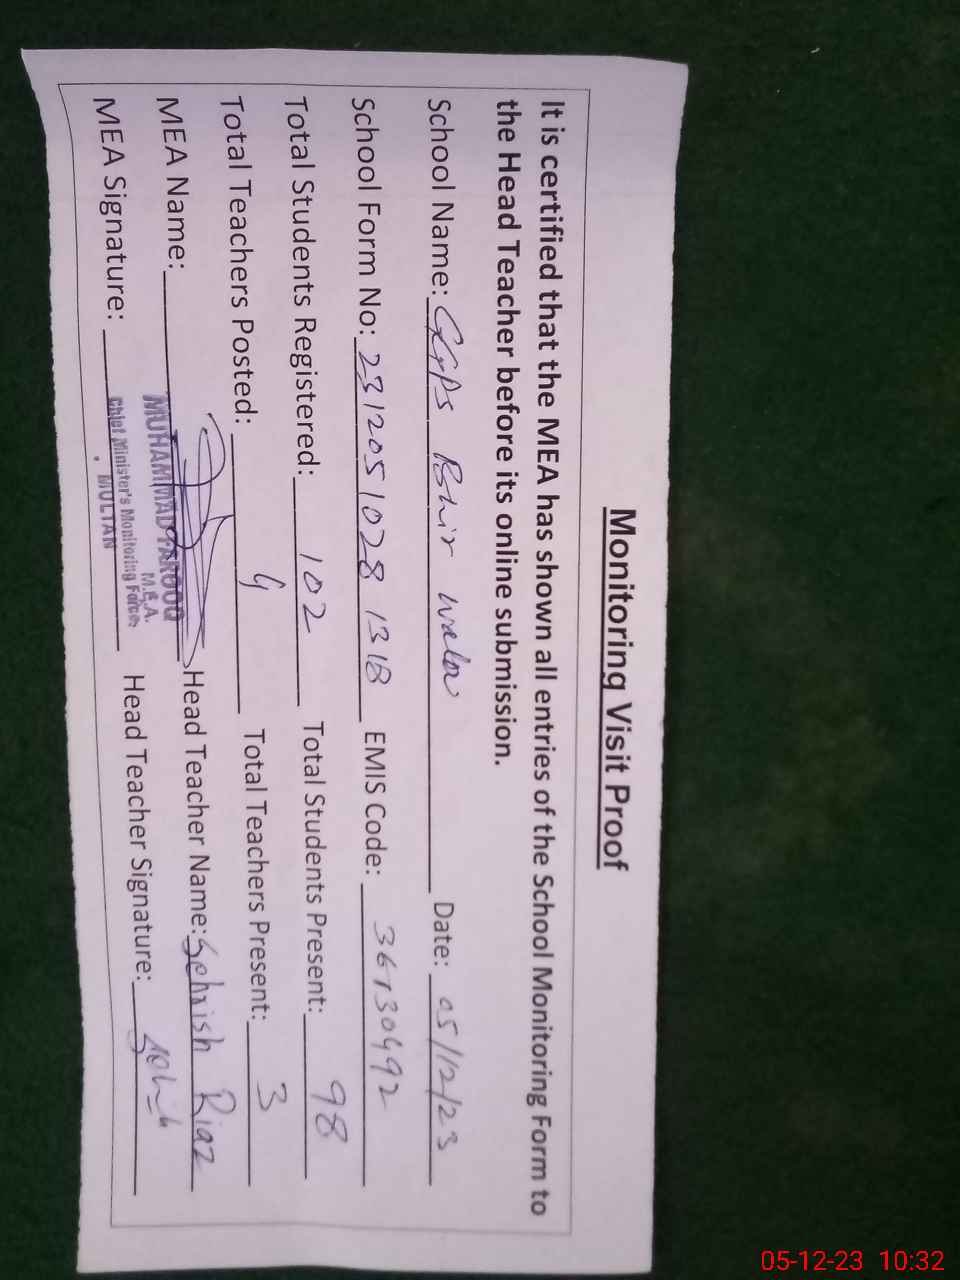 Monitoring Visit Proof
It is certified that the MEA has shown all entries of the School Monitoring Form to
the Head Teacher before its online submission.
School Name: GGPS Bhir wala Date: 05/12/23
School Form No: 231205 1028 1318 EMIS Code: 36130492
Total Students Registered: 102 Total Students Present: 98
Total Teachers Posted: 4 Total Teachers Present: 3
MEA Name: Head Teacher Name: Sehrish Riaz
MUHAMMAD FAROOQ
M.E.A.
Chief Minister's Monitoring Force
MULTAN
MEA Signature: Head Teacher Signature:
05-12-23 10:32